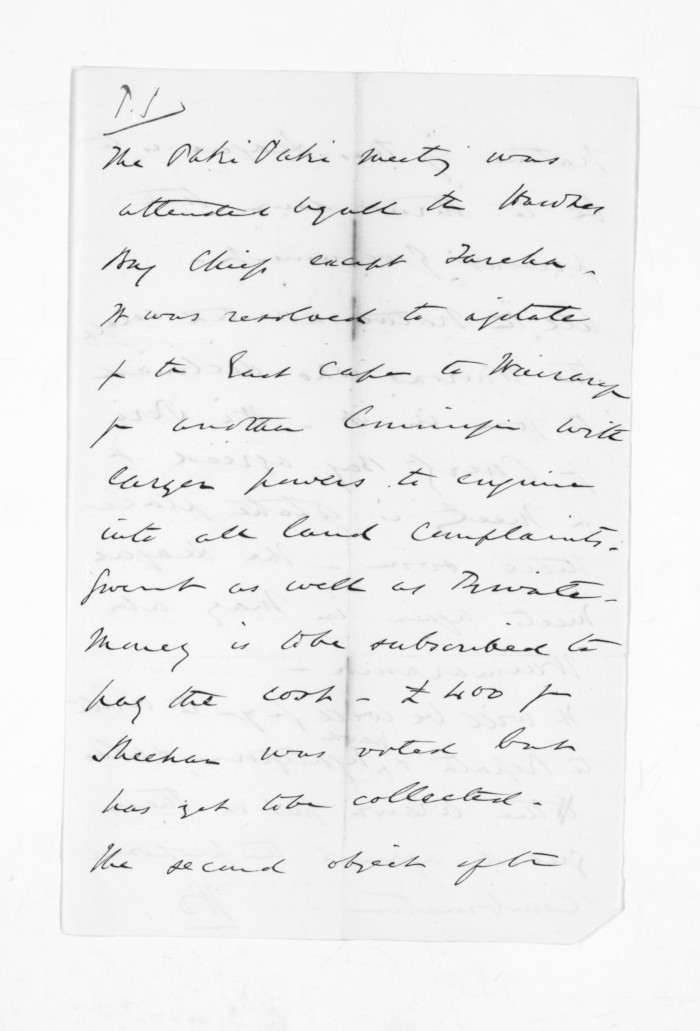 P.S
The Paki Paki meeting was
attended by all the Hawkes
Bay Chiefs except Tareha.
It was resolved to agitate
fr the East Cape to Wairarapa
fr another Commission with
larger powers to enquire
into all land complaints.
Govment as well as Private.
Money is to be subscribed to
pay the cost - £400 fr
Sheehan was voted but
has yet to be collected.
The second object of the